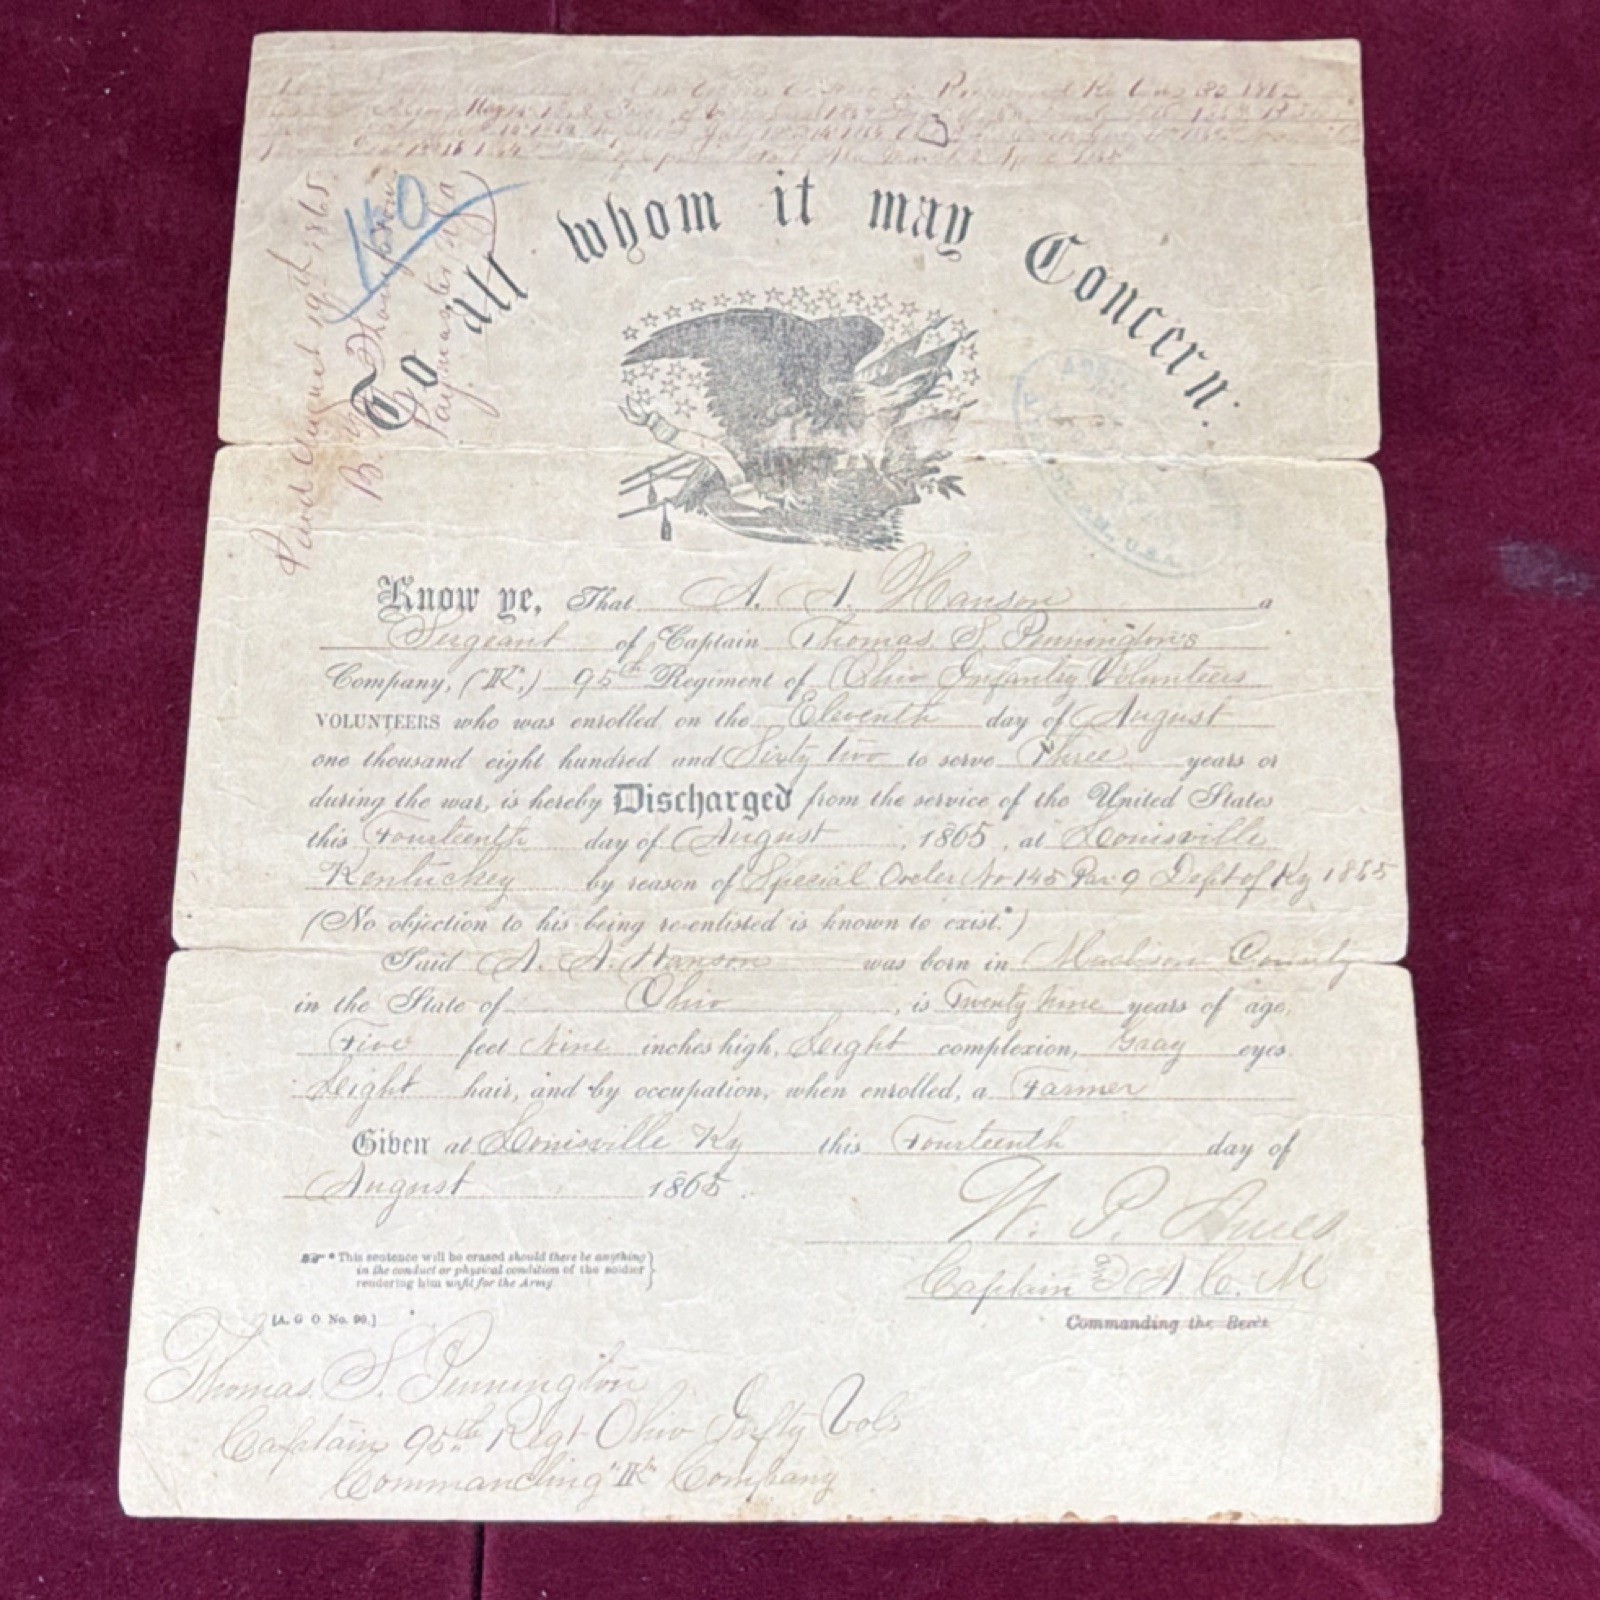 Richmond Ky Aug 30 1862
May 14 1863
To all whom it may Concern.
Paid August 19th 1865
B. Thompson
Paymaster USA
150
U.S.A.
Know ye, That A. A. Hanson a
Sergeant of Captain Thomas S. Pennington's
Company, (K,) 95th Regiment of Ohio Infantry Volunteers
VOLUNTEERS who was enrolled on the Eleventh day of August
one thousand eight hundred and Sixty two to serve Three years or
during the war, is hereby Discharged from the service of the United States
this Fourteenth day of August, 1865, at Louisville
Kentucky by reason of Special Order No 145 Par 9 Dept of Ky 1865
(No objection to his being re-enlisted is known to exist.*)
Said A. A. Hanson was born in Madison County
in the State of Ohio, is Twenty Nine years of age,
Five feet Nine inches high, Light complexion, Gray eyes
Light hair, and by occupation, when enrolled, a Farmer
Given at Louisville Ky this Fourteenth day of
August 1865.
W. P.
Captain and A. C. M
* This sentence will be erased should there be anything
in the conduct or physical condition of the soldier
rendering him unfit for the Army.
[A. G O No. 99.]
Commanding the Reg't
Thomas S. Pennington
Captain 95th Regt Ohio Infty Vols
Commanding "K" Company